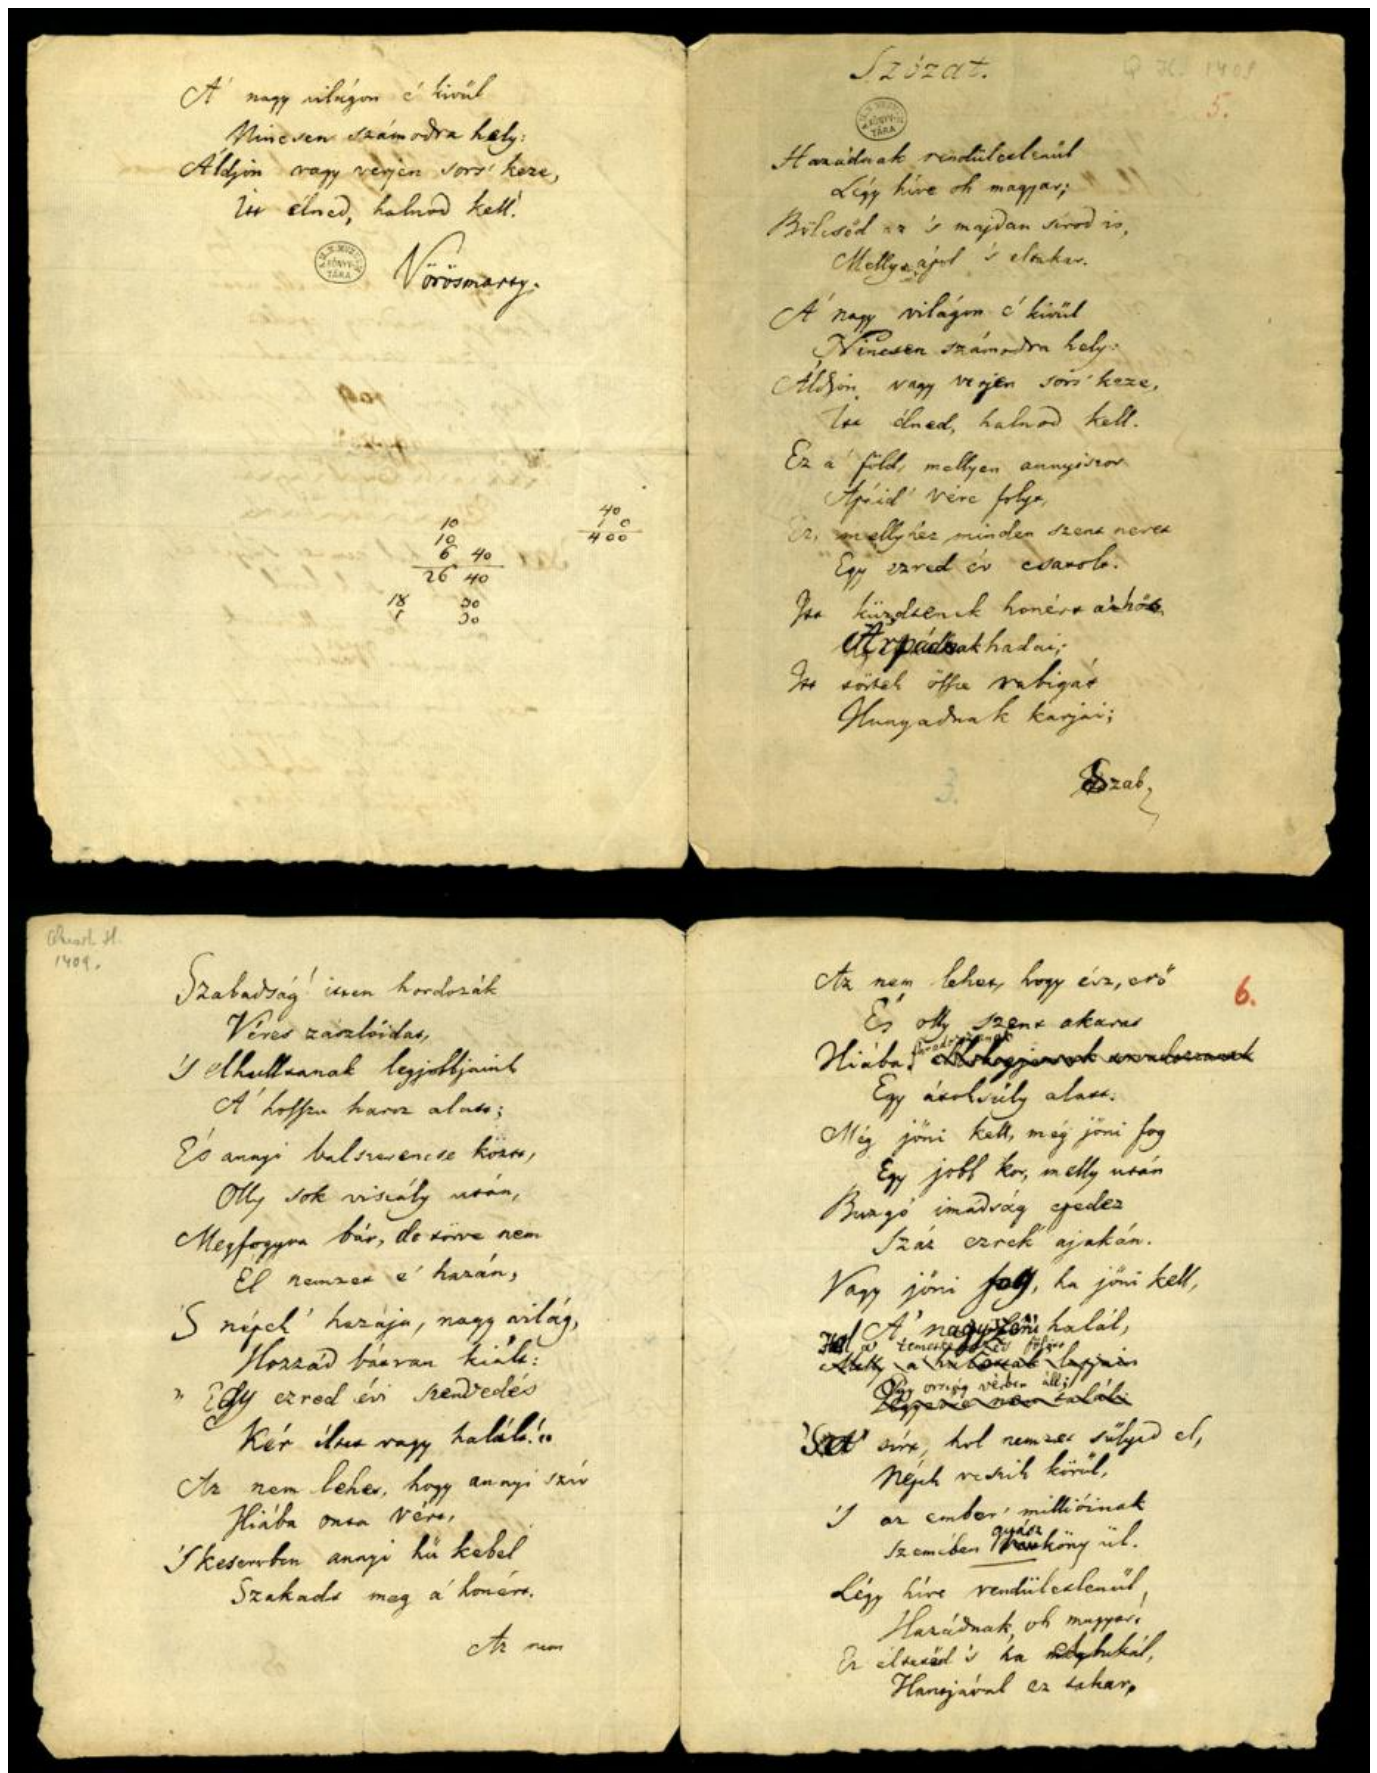 A' nagy világon é' kivűl
Nincsen számodra hely:
Áldjon vagy verjen sors' keze,
Itt élned, halnod kell.
M. N. MUZEUM
KÖNYV-
TÁRA
Vörösmarty.
40
10
400
10
10
6 40
26 40
18 30
30
Szózat.
Q H. 1409
5.
KÖNYV-
TÁRA
Hazádnak rendűletlenűl
Légy híve oh magyar;
Bölcsőd az 's majdan sírod is,
Melly ápol 's eltakar.
A' nagy világon é' kivűl
Nincsen számodra hely:
Áldjon vagy verjen sors' keze,
Itt élned, halnod kell.
Ez a' föld, mellyen annyiszor
Apáid' vére folyt,
Ez, mellyhez minden szent nevet
Egy ezred év csatolt.
Itt küzdtenek honért a' hős
Árpádnak hadai;
Itt törtek össze rabigát
Hunyadnak karjai;
3.
Szab,
Quart. H.
1409.
Szabadság! itten hordozák
Véres zászlóidat,
'S elhulltanak legjobbjaink
A' hosszu harcz alatt;
És annyi balszerencse közt,
Olly sok viszály után,
Megfogyva bár, de törve nem
Él nemzet e' hazán,
'S népek' hazája, nagy világ,
Hozzád bátran kiált:
„Egy ezred évi szenvedés
Kér éltet vagy halált!"
Az nem lehet, hogy annyi szív
Hiába onta vért,
'S keservben annyi hű kebel
Szakadt meg a' honért.
Az nem
6.
Az nem lehet, hogy ész, erő
És olly szent akarat
Hiába
Egy átoksúly alatt.
Még jőni kell, még jőni fog
Egy jobb kor, melly után
Buzgó imádság epedez
Száz ezrek' ajakán.
Vagy jőni fog, ha jőni kell,
A' nagyszerű halál,
Hol a' temetkezés fölött
Egy ország vérben áll;
'S a' sírt, hol nemzet sűlyed el,
Népek veszik körűl,
'S az ember' millióinak
gyász
Szemében köny űl.
Légy híve rendűletlenűl,
Hazádnak, oh magyar!
Ez éltetőd 's ha elbukál,
Hantjával ez takar,